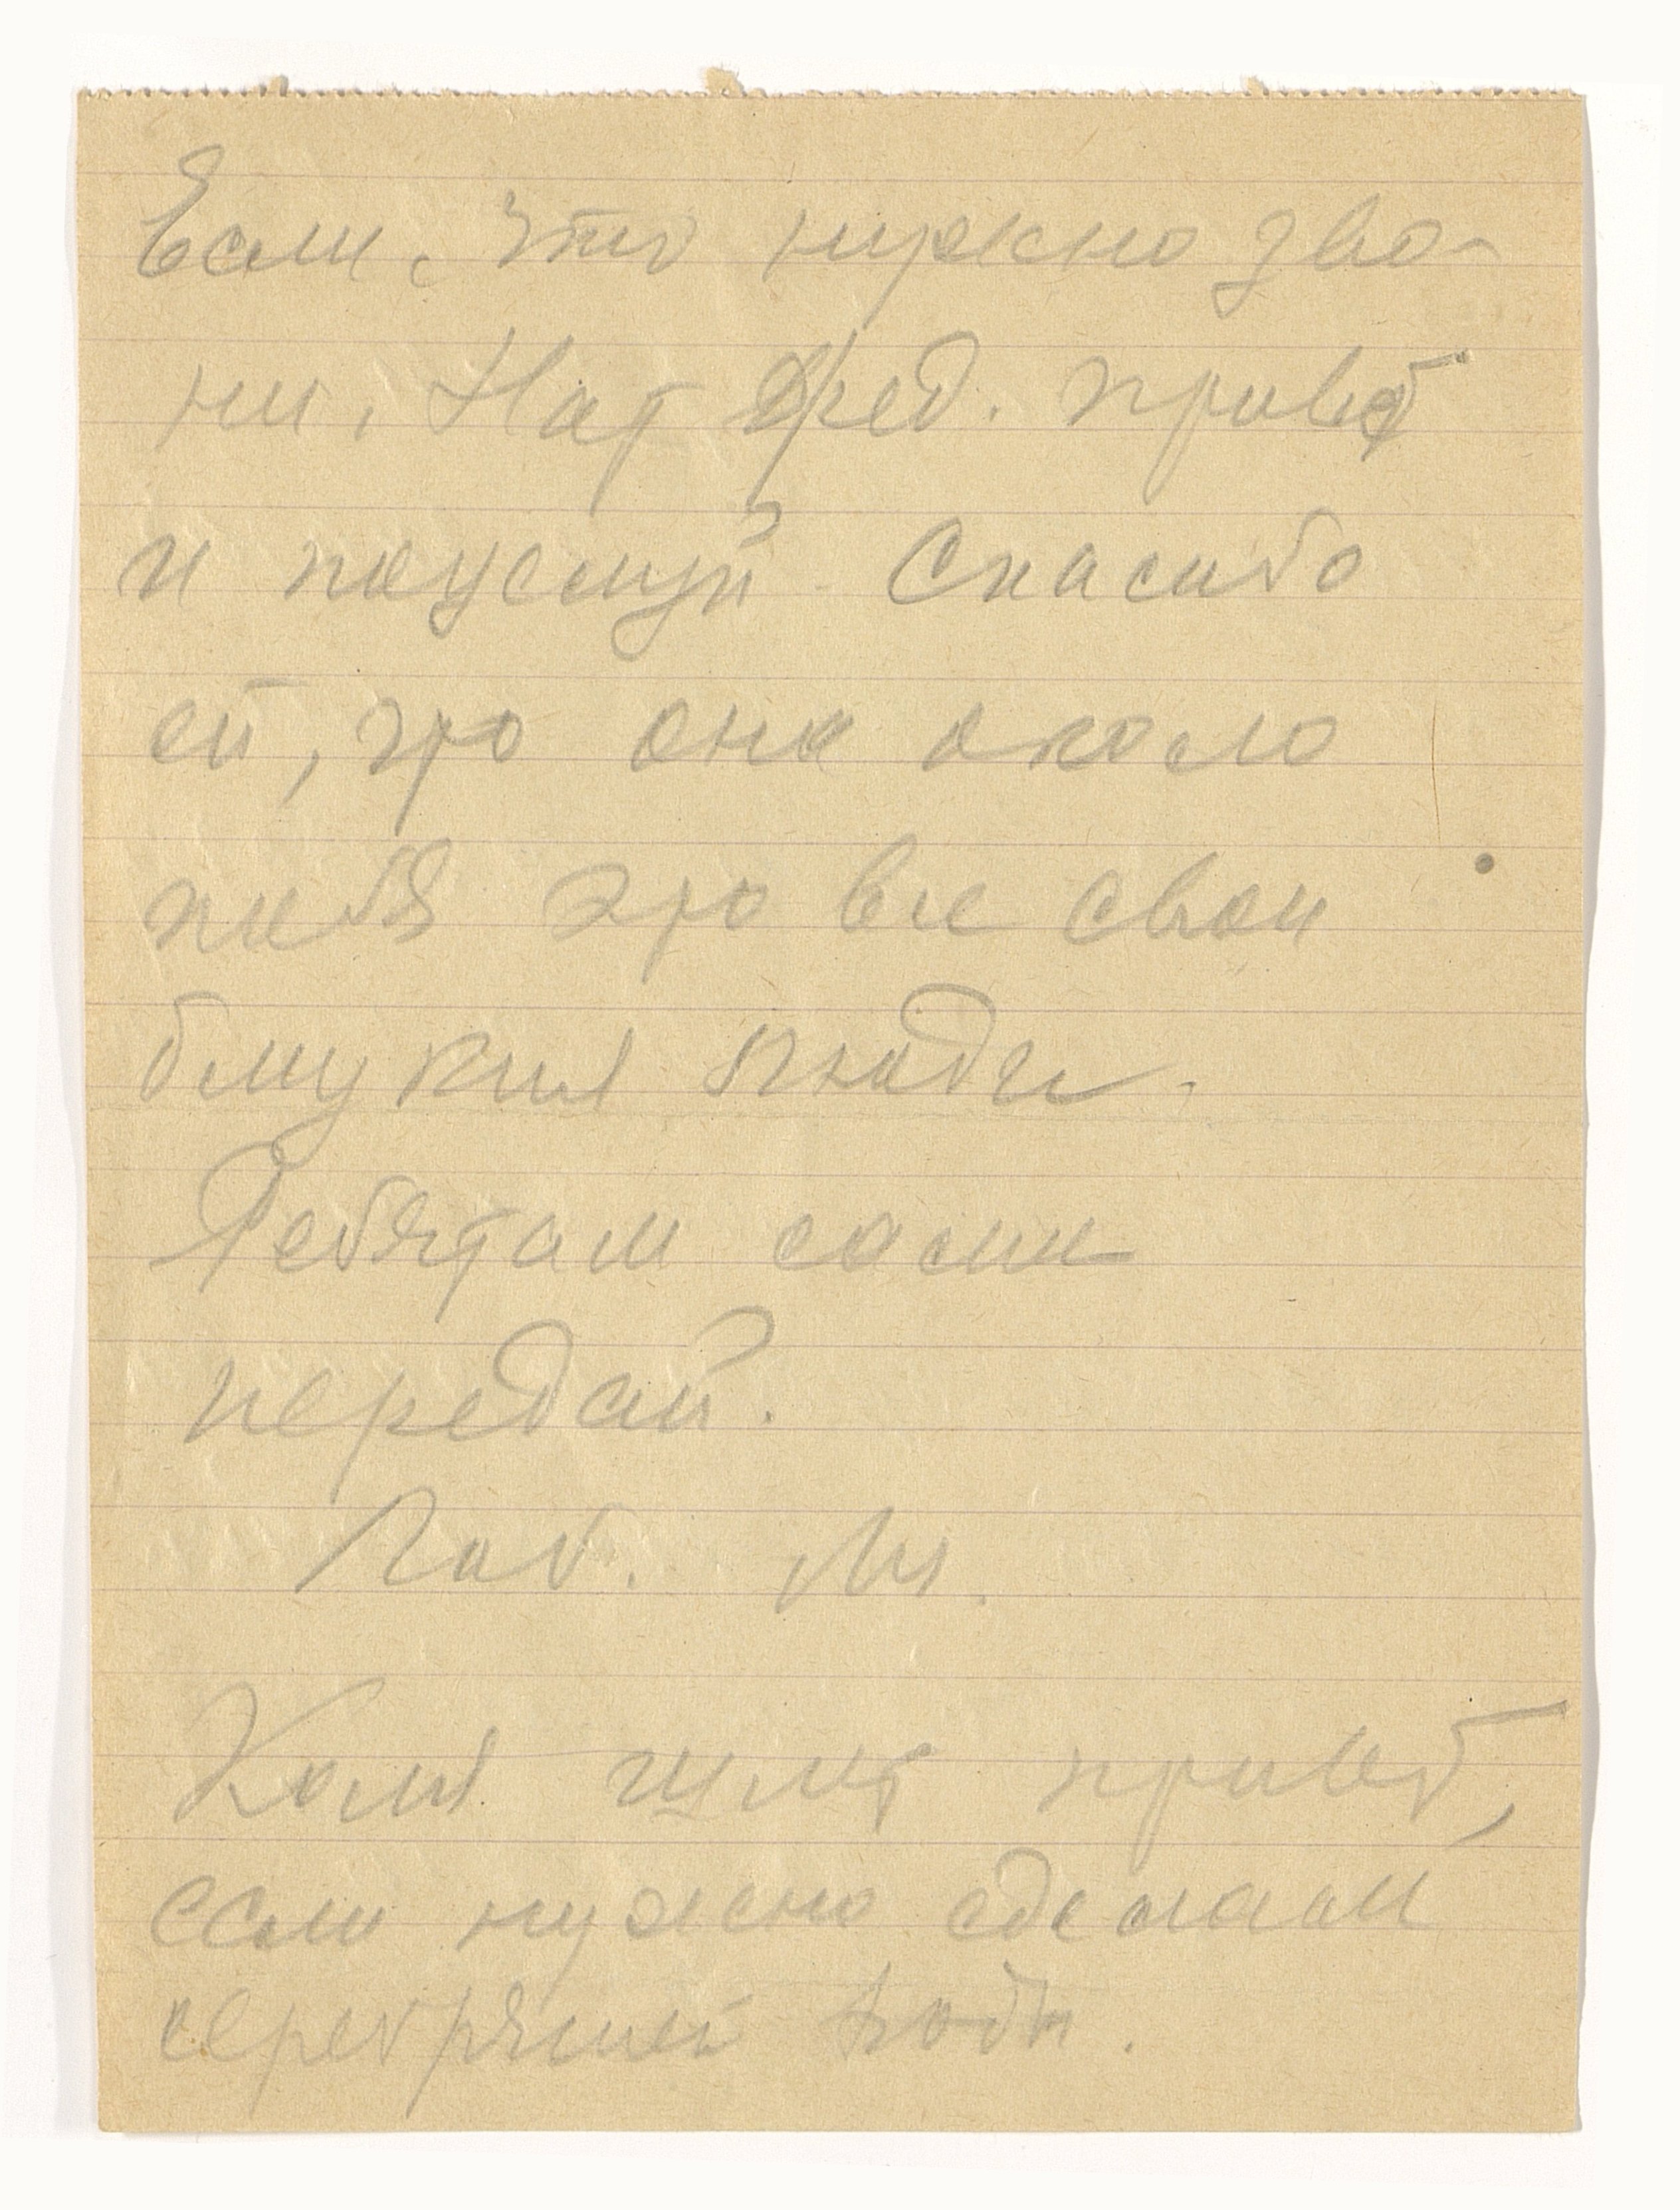 Если, что нужно зво-
ни. Нат Фед. привет
и поцелуй. Спасибо
ей, что она около
тебя это все свои
близкие люди.
Ребятам если
передай.
Люб. М.
Коля шлет привет,
если нужно сделаем
серебряной воды.